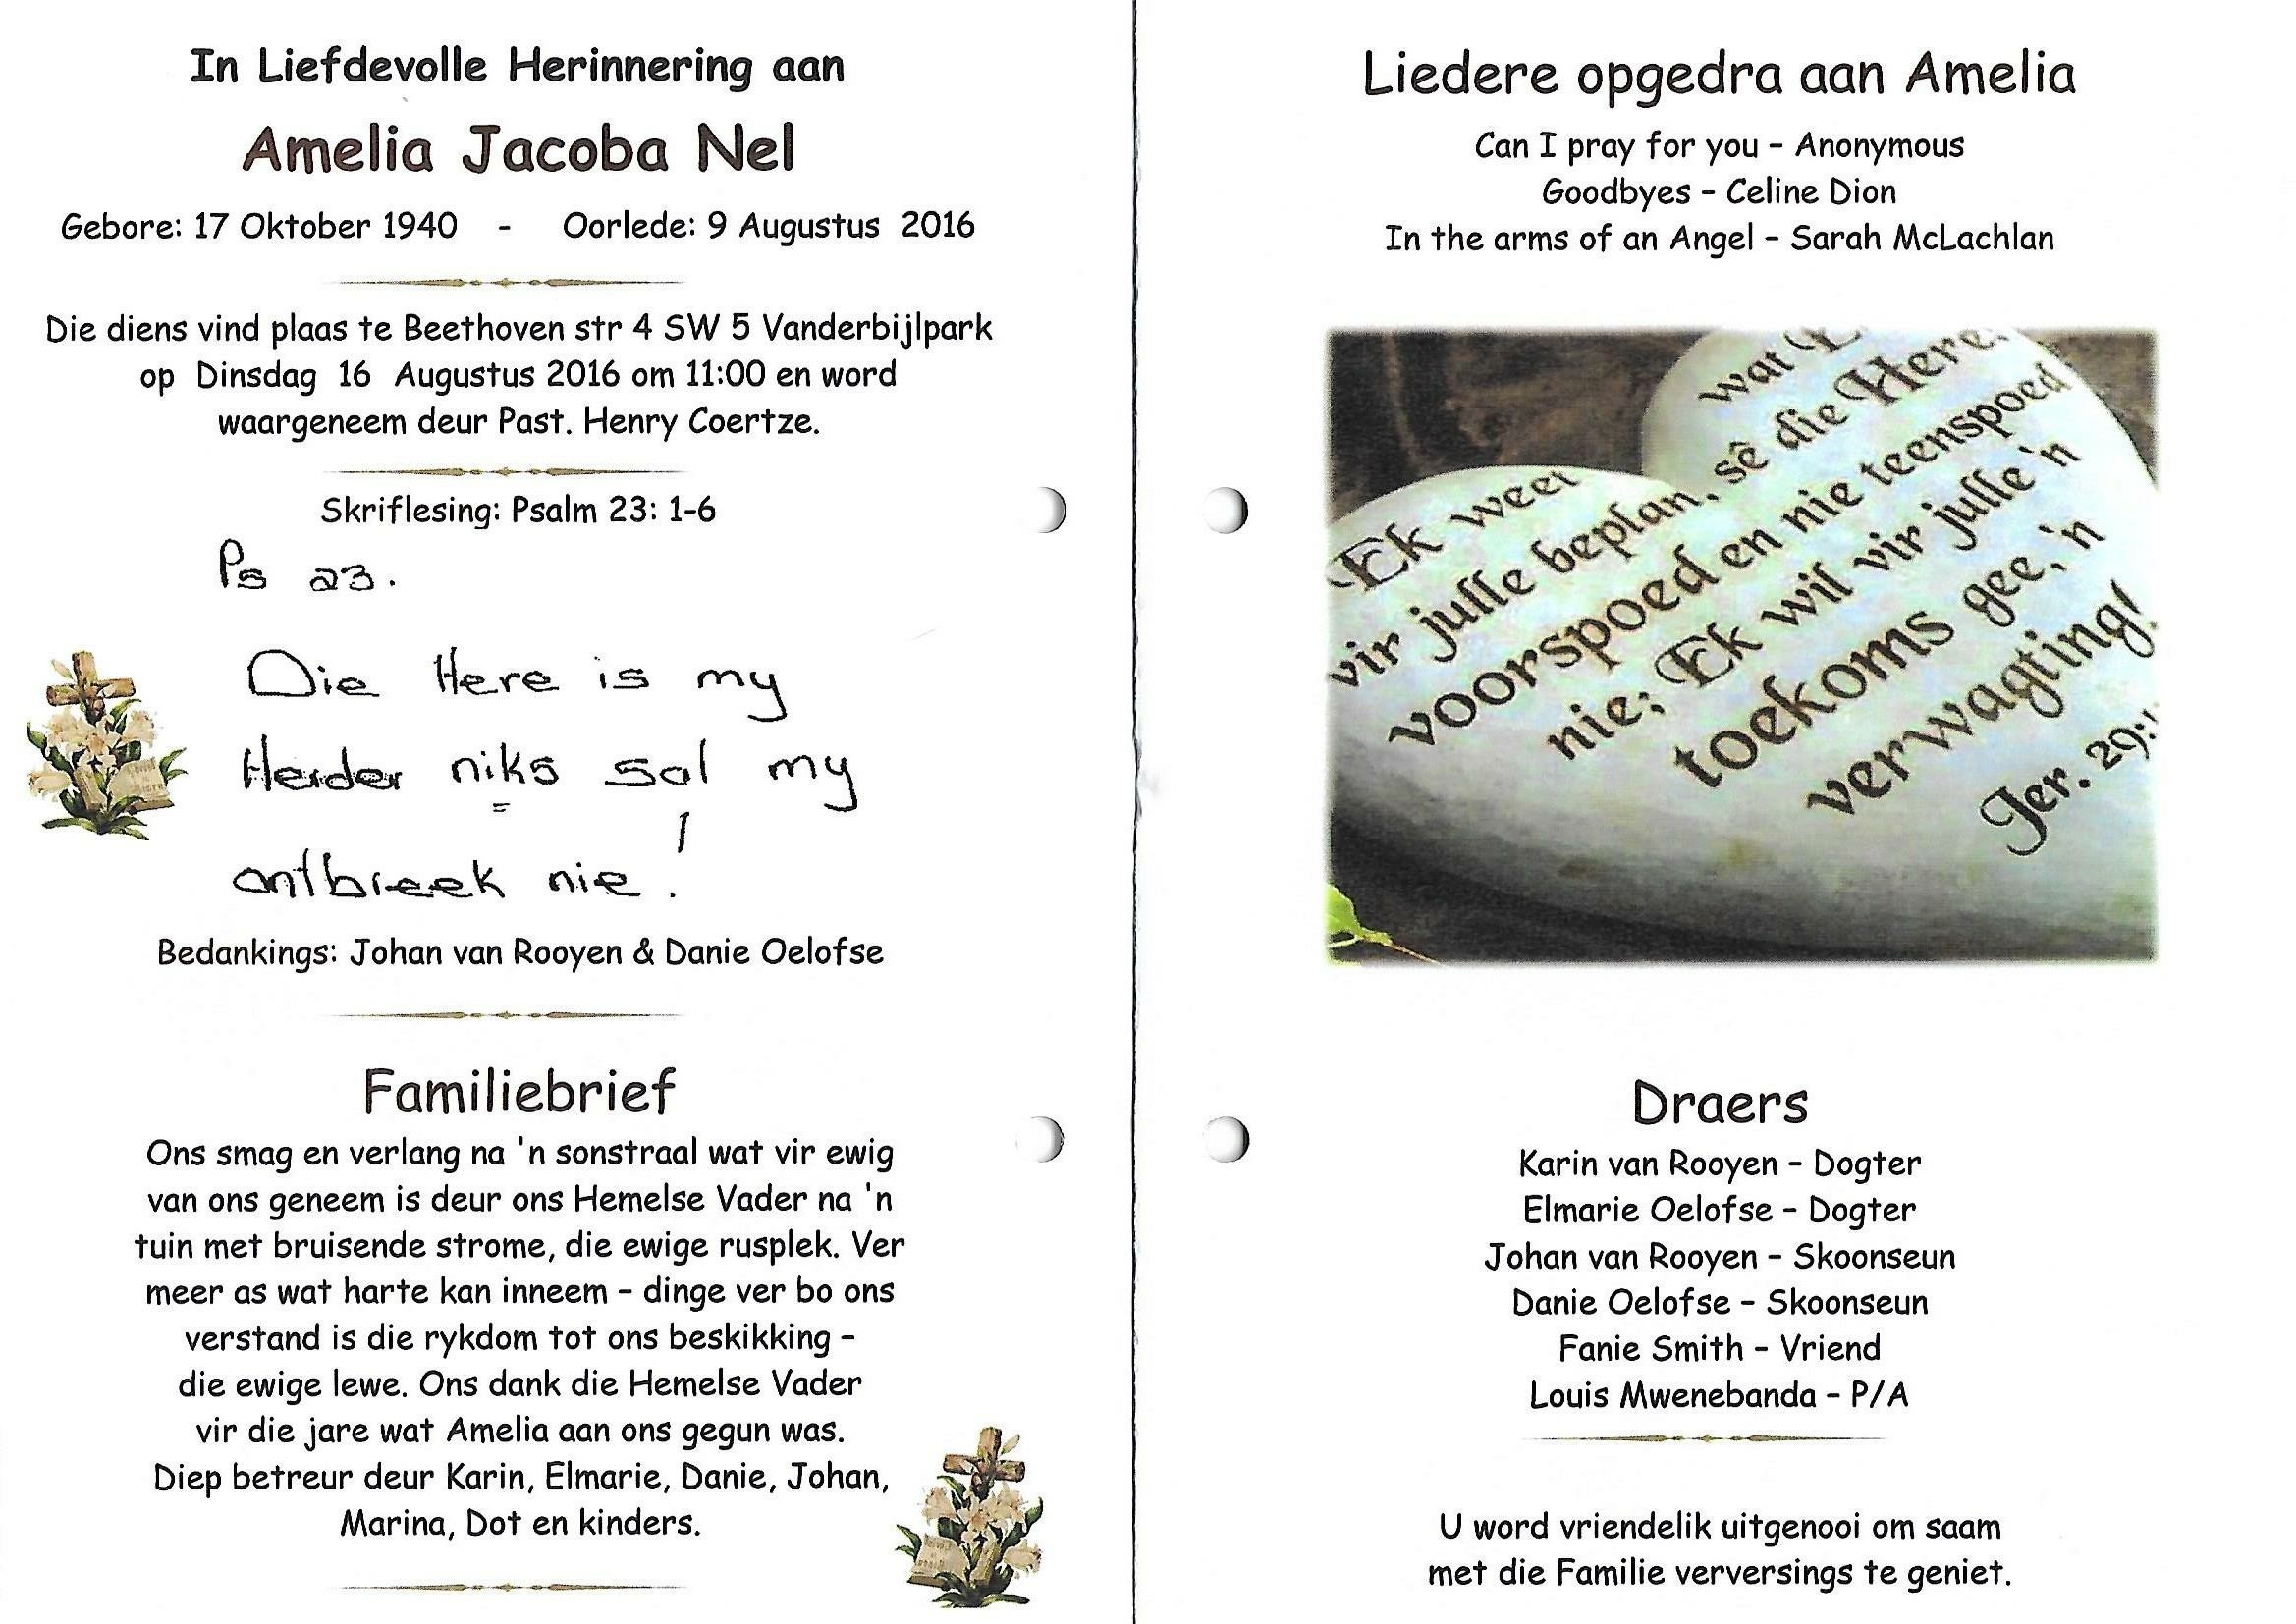 In Liefdevolle Herinnering aan
Amelia Jacoba Nel
Gebore: 17 Oktober 1940 - Oorlede: 9 Augustus 2016
Die diens vind plaas te Beethoven str 4 SW 5 Vanderbijlpark
op Dinsdag 16 Augustus 2016 om 11:00 en word
waargeneem deur Past. Henry Coertze.
Skriflesing: Psalm 23: 1-6
Ps 23.
Die Here is my
Herder niks sal my
ontbreek nie!
Bedankings: Johan van Rooyen & Danie Oelofse
Familiebrief
Ons smag en verlang na 'n sonstraal wat vir ewig
van ons geneem is deur ons Hemelse Vader na 'n
tuin met bruisende strome, die ewige rusplek. Ver
meer as wat harte kan inneem – dinge ver bo ons
verstand is die rykdom tot ons beskikking –
die ewige lewe. Ons dank die Hemelse Vader
vir die jare wat Amelia aan ons gegun was.
Diep betreur deur Karin, Elmarie, Danie, Johan,
Marina, Dot en kinders.
Liedere opgedra aan Amelia
Can I pray for you – Anonymous
Goodbyes – Celine Dion
In the arms of an Angel – Sarah McLachlan
Ek weet wat
vir julle beplan, sê die Here:
voorspoed en nie teenspoed
nie; Ek wil vir julle 'n
toekoms gee, 'n
verwagting!
Jer. 29:
Draers
Karin van Rooyen – Dogter
Elmarie Oelofse – Dogter
Johan van Rooyen – Skoonseun
Danie Oelofse – Skoonseun
Fanie Smith – Vriend
Louis Mwenebanda – P/A
U word vriendelik uitgenooi om saam
met die Familie verversings te geniet.